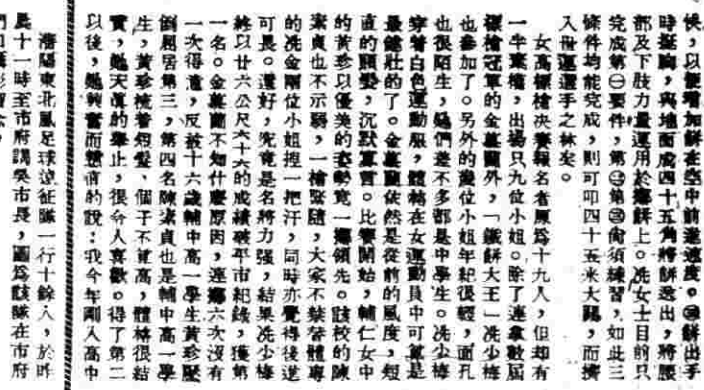 快，以便增加餅在空中前進速度。㊂餅出手
時挺胸，與地面成四十五角將餅送出，將腰
部及下肢力量運用於擲餅上。冼女士目前只
完成第㊀要件，第㊁㊂尚須練習，如此三
條件均能完成，則可叩四十五米大關，而擠
入世運選手之林矣。
女高標槍決賽報名者原爲十九人，但却有
一半棄權，出場只九位小姐。除了連拿數屆
標槍冠軍的金蕙蘭外，「鐵餅大王」冼少梅
也參加了。另外的幾位小姐年紀很輕，面孔
也很陌生，她們差不多都是中學生。冼少梅
穿着白色運動服，體格在女運動員中可算是
最健壯的了。金蕙蘭依然是從前的風度，短
直的頭髮，沉默寡言。比賽開始，輔仁女中
的黃珍以優美的姿勢竟一擲領先。該校的陳
素貞也不示弱，一槍緊隨，大家不禁替體專
的冼金兩位小姐揑一把汗，同時亦覺得後進
可畏。還好，究竟是名將力强，結果冼少梅
終以廿六公尺六十六的成績破平市紀錄，獲第
一名。金蕙蘭不知什麼原因，連擲六次沒有
一次得意，反被十六歲輔中高一學生黃珍壓
倒屈居第三，第四名陳素貞也是輔中高一學
生，黃珍梳着短髮，個子不算高，體格很結
實，她天眞的舉止，很令人喜歡。得了第二
以後，她興奮而驕傲的說：我今年剛入高中
瀋陽東北風足球遠征隊一行十餘人，於昨
晨十一時至市府謁吳市長，因爲該隊在市府